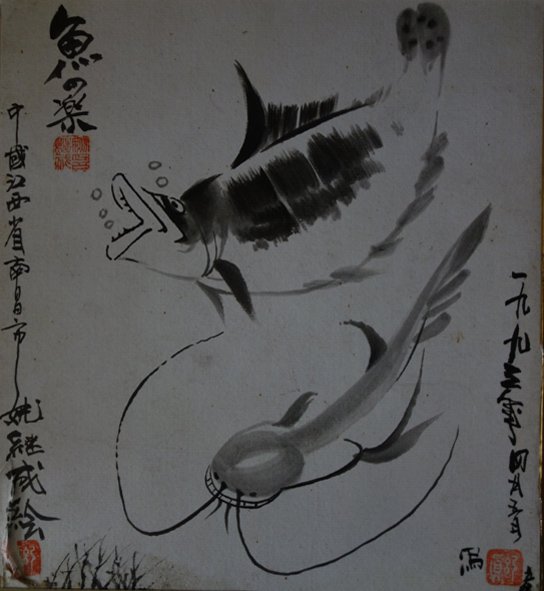 魚の楽
中國江西省南昌市
姚継成絵
一九九三年四月
写